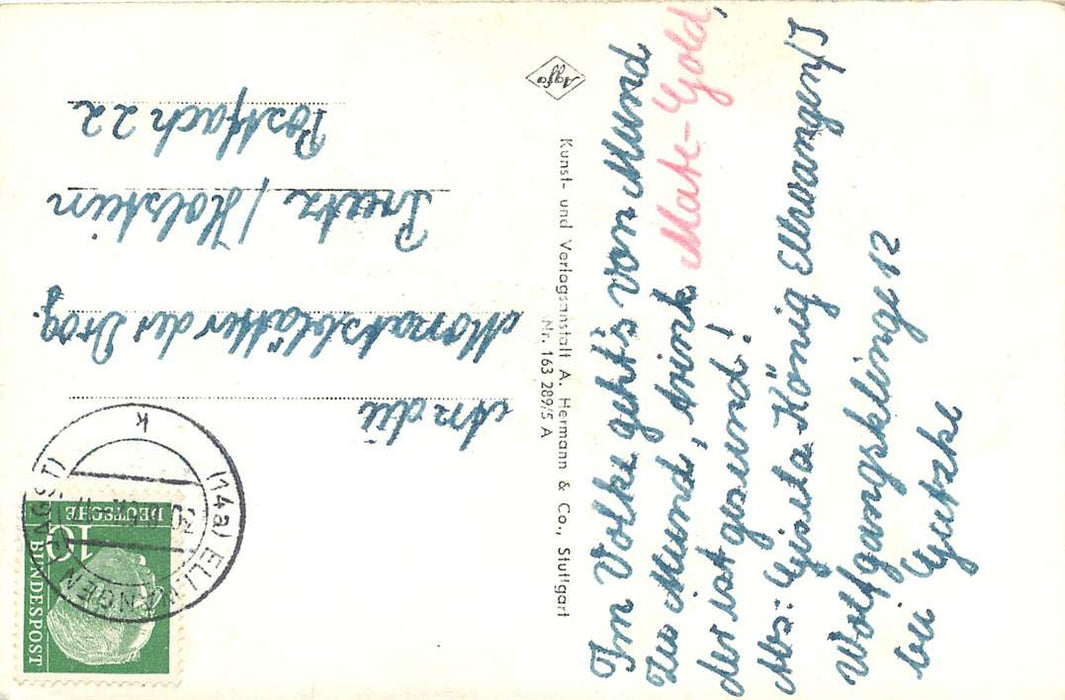 Im Volke geht's von Mund
zu Mund, trink Mate-Gold,
der ist gesund!
Abs: Gisela König Ellwangen/J
Wolfgangsklinge 12
bei Gutzke
Agfa
Kunst- und Verlagsanstalt A. Hermann & Co., Stuttgart
Nr. 163 289/5 A
An die
Monatsblätter der Drog.
Preetz / Holstein
Postfach 22
(14a) ELLWANGEN (JAGST)
k
10
DEUTSCHE
BUNDESPOST